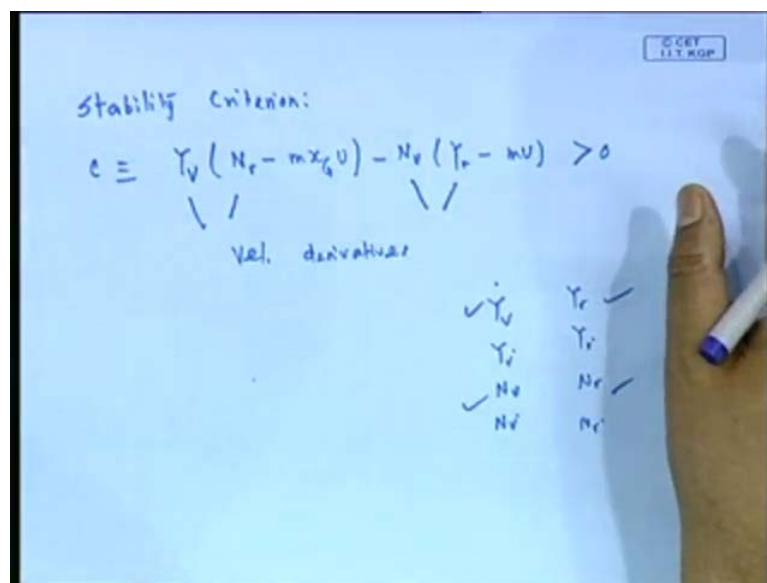 © CET
I.I.T. KGP
Stability Criterion:
C ≡ Y_v ( N_r - m x_G U) - N_v ( Y_r - mU) > 0
\ / \ /
Vel. derivatives
✓ Ẏ_v Y_r ✓
Y_v̇ Y_ṙ
✓ N_v N_r ✓
N_v̇ N_ṙ